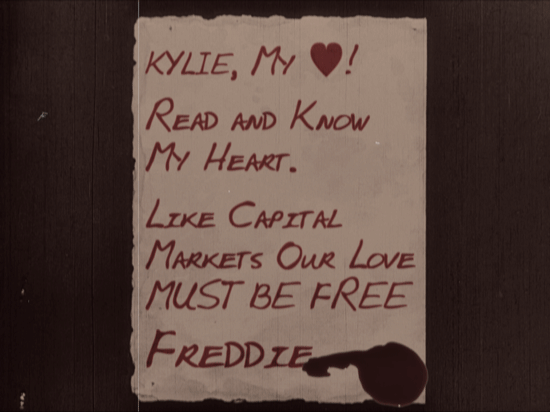 KYLIE, MY ♥!
READ AND KNOW
MY HEART.
LIKE CAPITAL
MARKETS OUR LOVE
MUST BE FREE
FREDDIE